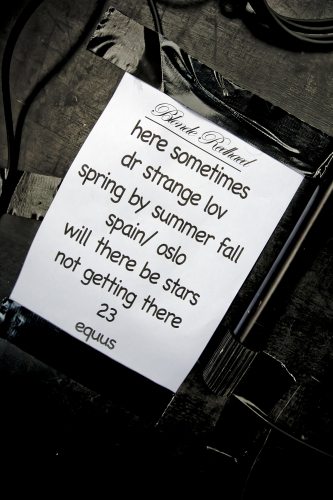 Blonde Redhead
here sometimes
dr strange lov
spring by summer fall
spain/ oslo
will there be stars
not getting there
23
equus